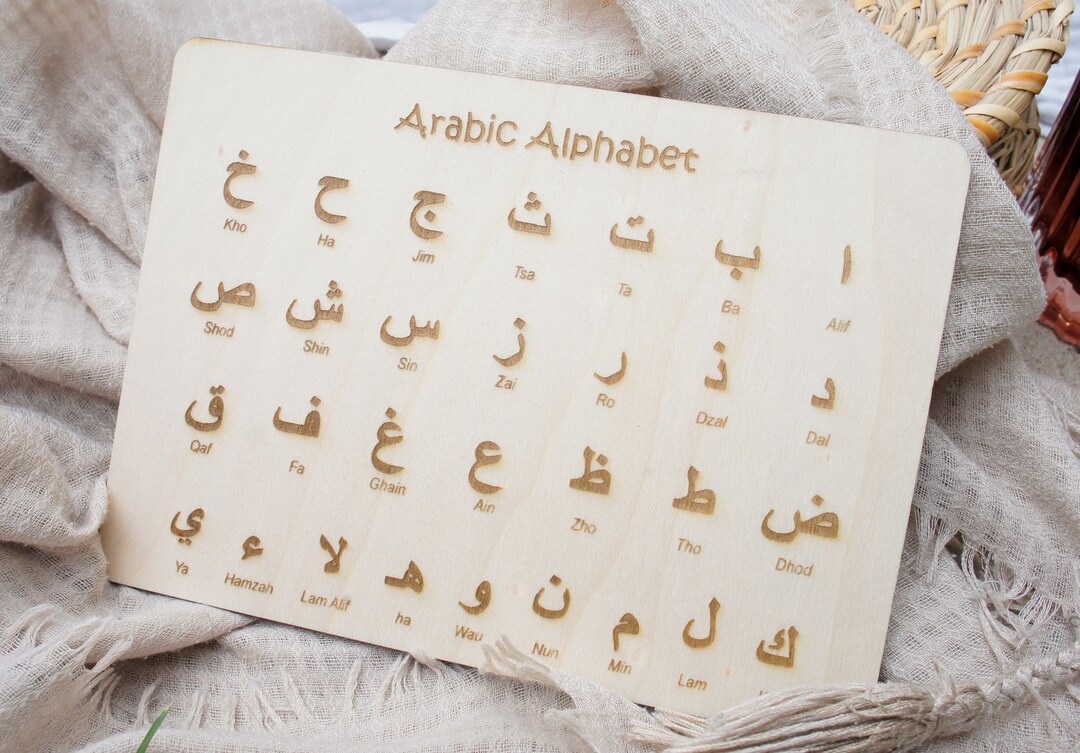 Arabic Alphabet
ا ب ت ث ج ح خ
Alif Ba Ta Tsa Jim Ha Kho
د ذ ر ز س ش ص
Dal Dzal Ro Zai Sin Shin Shod
ض ط ظ ع غ ف ق
Dhod Tho Zho Ain Ghain Fa Qaf
ك ل م ن و ه لا ء ي
Lam Min Nun Wau ha Lam Alif Hamzah Ya